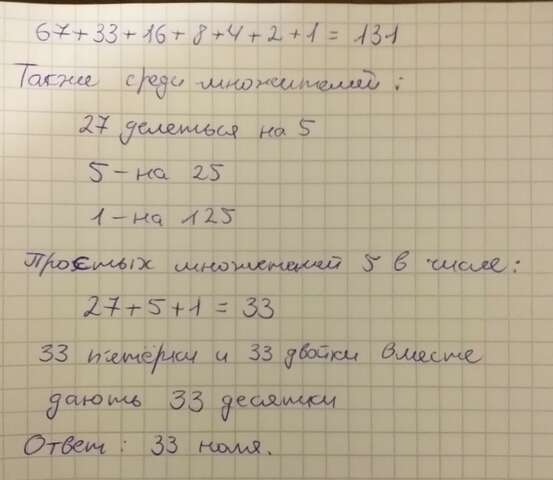 67+33+16+8+4+2+1 = 131
Также среди множителей:
27 делеться на 5
5 – на 25
1 – на 125
Простых множетелей 5 в числе:
27+5+1 = 33
33 пятёрки и 33 двойки вместе
дають 33 десятки
Ответ: 33 ноля.